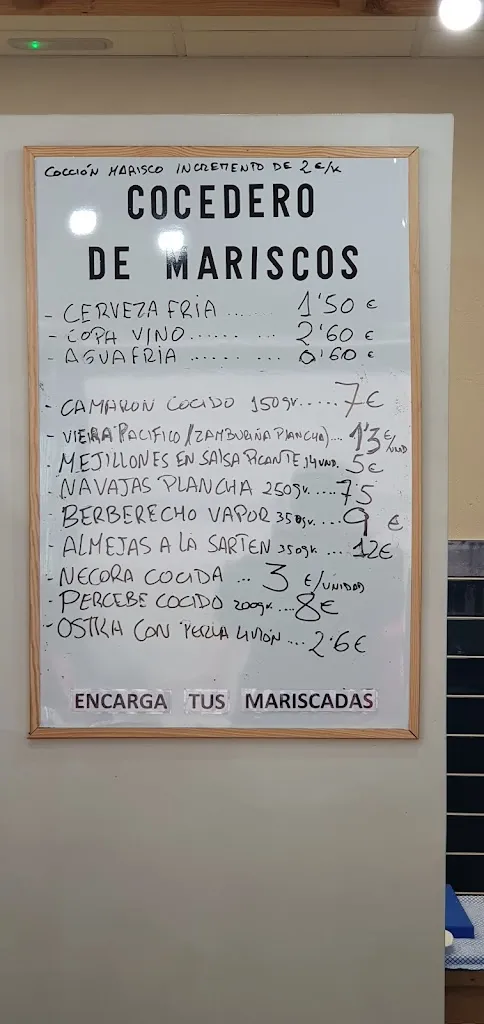 COCCIÓN MARISCO INCREMENTO DE 2€/K
COCEDERO
DE MARISCOS
- CERVEZA FRIA ........ 1'50 €
- COPA VINO...... ... 2'60 €
- AGUA FRIA ...... ... 0'60 €
- CAMARON COCIDO 150gr..... 7€
- VIEIRA PACIFICO/(ZAMBURIÑA PLANCHA)... 1'3 €/UND
- MEJILLONES EN SALSA PICANTE 14 UND. 5€
- NAVAJAS PLANCHA 250gr.... 7'5
- BERBERECHO VAPOR 350gr.... 9 €
- ALMEJAS A LA SARTEN 350gr ... 12€
- NECORA COCIDA ... 3 €/UNIDAD
- PERCEBE COCIDO 200gr.... 8€
- OSTRA CON PERLA LIMÓN .... 2'6€
ENCARGA TUS MARISCADAS